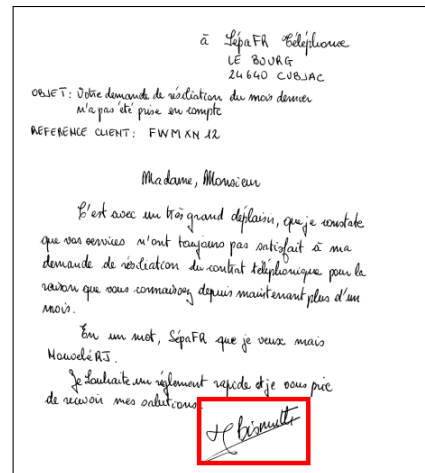 à SépaFR Téléphone
LE BOURG
24640 CUBJAC
OBJET : Votre demande de résiliation du mois dernier
n'a pas été prise en compte
REFERENCE CLIENT : FWMXN 12
Madame, Monsieur
C'est avec un très grand déplaisir, que je constate
que vos services n'ont toujours pas satisfait à ma
demande de résiliation du contrat téléphonique pour la
raison que vous connaissez depuis maintenant plus d'un
mois.
En un mot, SépaFR que je veux mais
NouveléRJ.
Je souhaite un réglement rapide et je vous prie
de recevoir mes salutions.
Bismuth